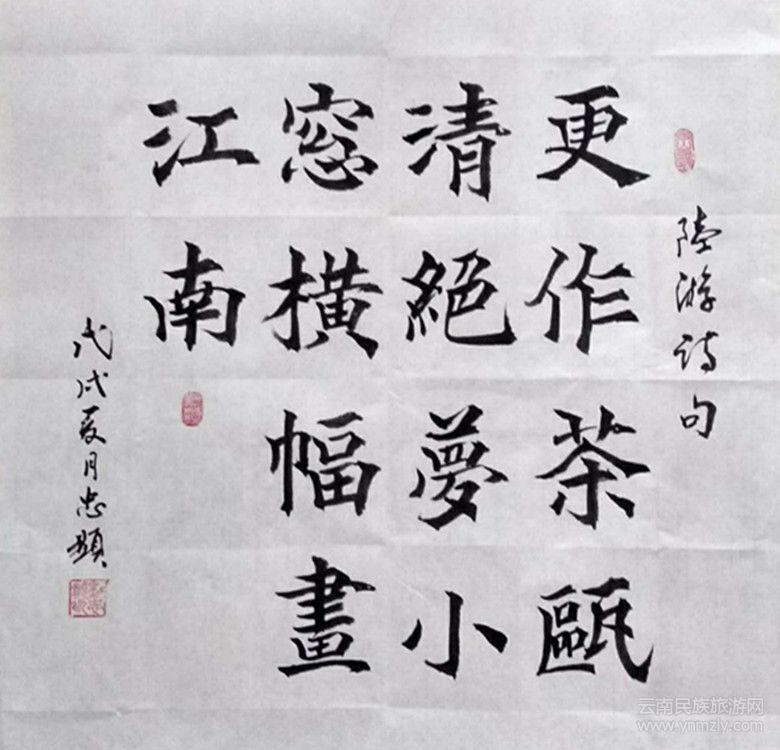 陸游詩句
更作茶甌
清絕夢小
窓橫幅畫
江南
戊戌夏月忠題
云南民族旅游网
www.ynmzly.com